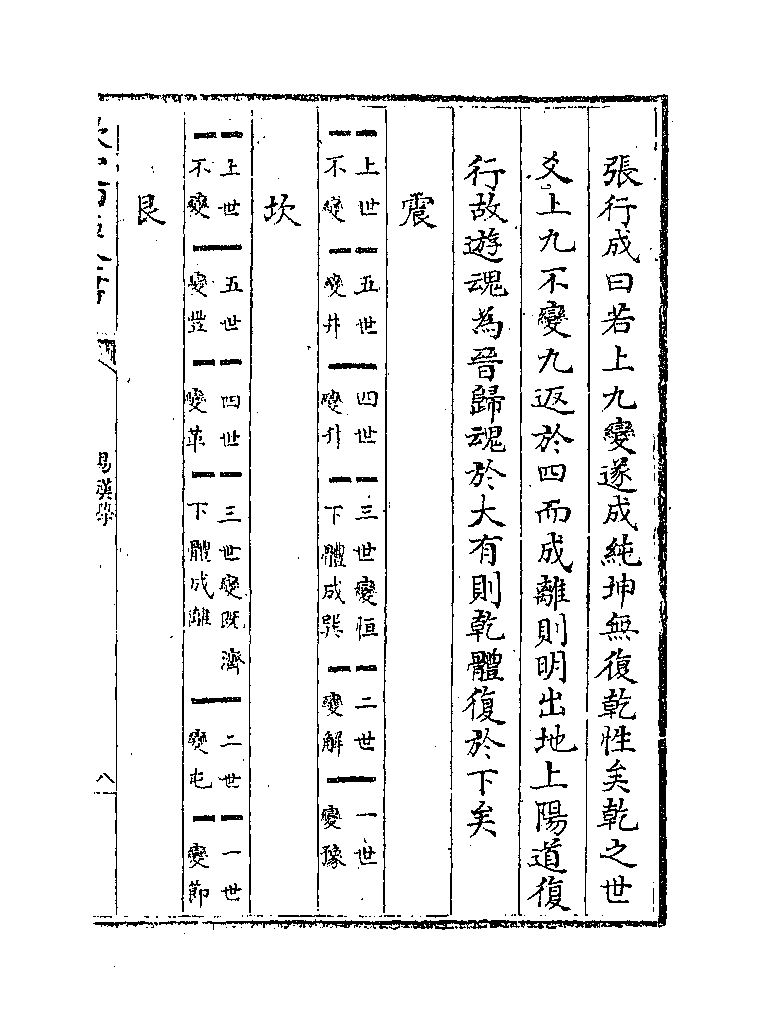 張行成曰若上九變遂成純坤無復乾性矣乾之世
爻上九不變九返於四而成離則明出地上陽道復
行故遊魂為晉歸魂於大有則乾體復於下矣
震
上世不變 五世變井 四世變升 三世變恒下體成巽 二世變解 一世變豫
坎
上世不變 五世變豐 四世變革 三世變既濟下體成離 二世變屯 一世變節
艮
易漢學
八